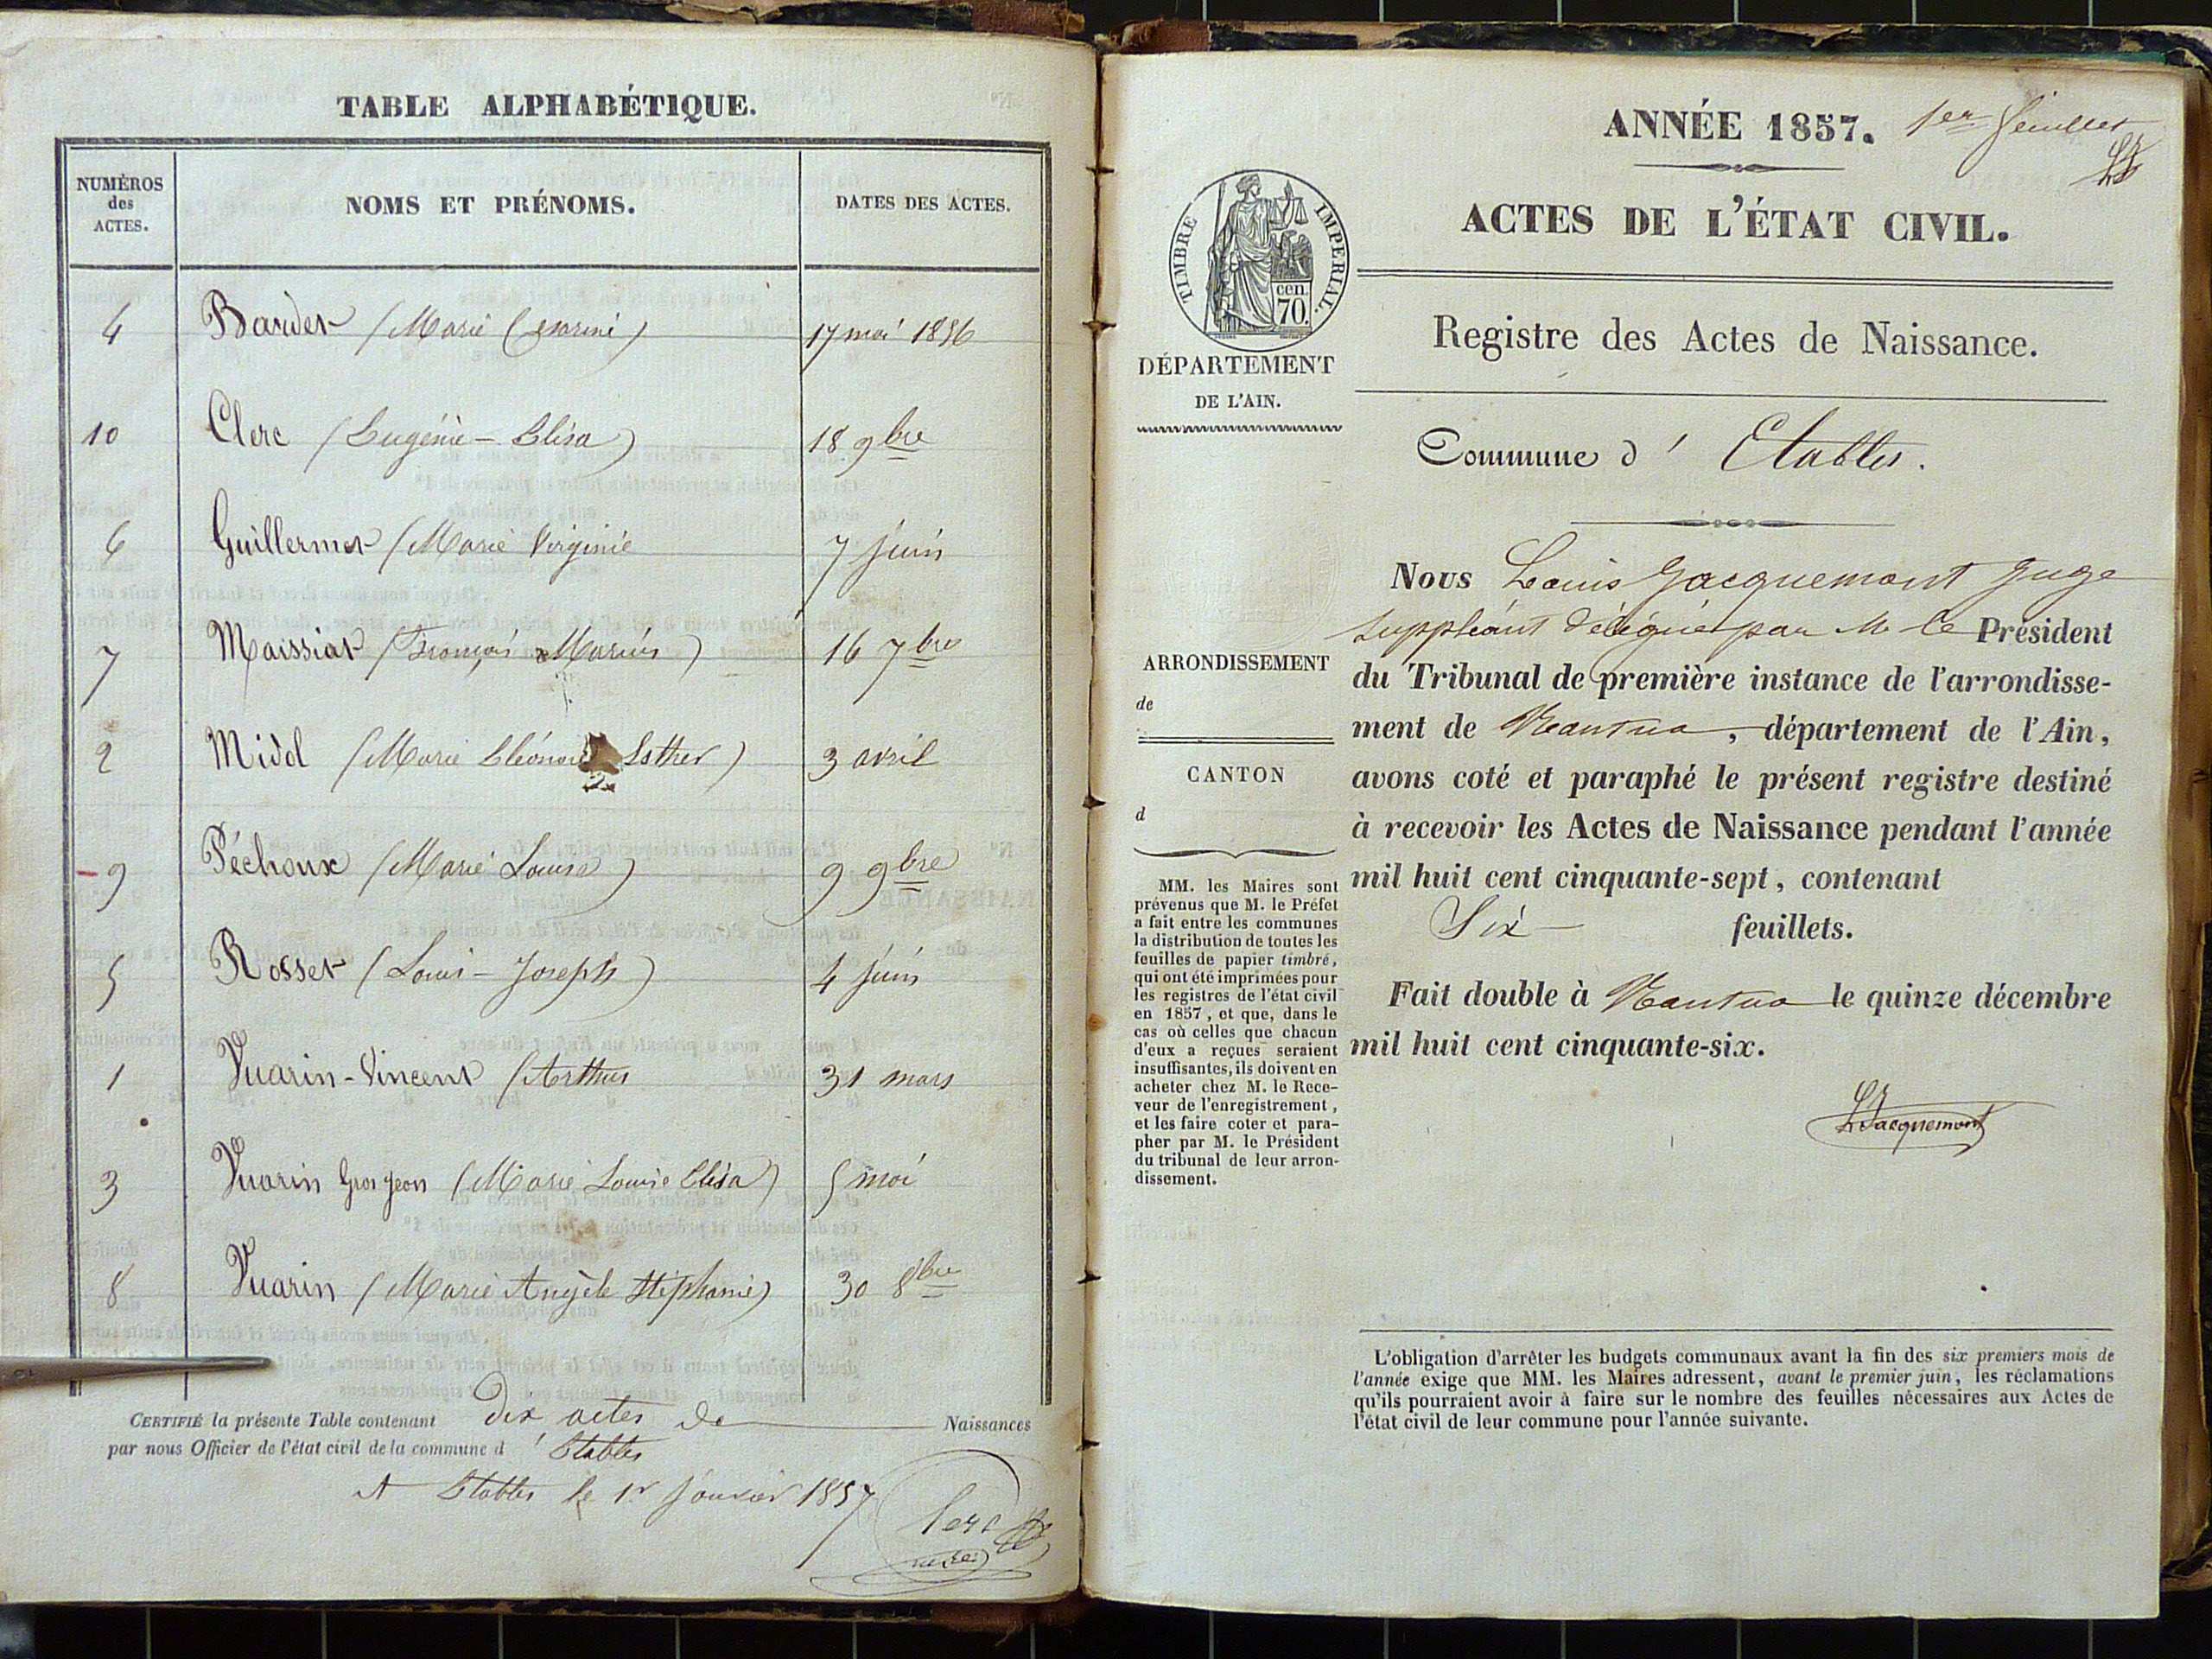 TABLE ALPHABÉTIQUE.
NUMÉROS des ACTES.
NOMS ET PRÉNOMS.
DATES DES ACTES.
4 Bardet (Marie Césarine) 17 mai 1856
10 Clerc (Eugénie - Elisa) 18 9bre
6 Guillermet (Marie Virginie 7 juin
7 Maissiat (François Marius) 16 7bre
2 Midol (Marie Eléonore Esther) 3 avril
9 Péchoux (Marie Louise) 9 9bre
5 Rosset (Louis - Joseph) 4 juin
1 Vuarin - Vincent (Arthur 31 mars
3 Vuarin Grosjean (Marie Louise Elisa) 5 mai
8 Vuarin (Marie Angèle Stéphanie) 30 8bre
CERTIFIÉ la présente Table contenant dix actes de Naissances
par nous Officier de l'état civil de la commune d' Etables
A Etables le 1r janvier 1857
Clerc
ANNÉE 1857. 1er feuillet
ACTES DE L'ÉTAT CIVIL.
TIMBRE IMPERIAL.
cen. 70.
DÉPARTEMENT
DE L'AIN.
Registre des Actes de Naissance.
Commune d' Etables.
Nous Louis Jacquemont Juge
suppléant délégué par M. le Président
du Tribunal de première instance de l'arrondisse-
ment de Nantua, département de l'Ain,
avons coté et paraphé le présent registre destiné
à recevoir les Actes de Naissance pendant l'année
mil huit cent cinquante-sept, contenant
Six feuillets.
Fait double à Nantua le quinze décembre
mil huit cent cinquante-six.
LJacquemont
ARRONDISSEMENT
de
CANTON
d
MM. les Maires sont
prévenus que M. le Préfet
a fait entre les communes
la distribution de toutes les
feuilles de papier timbré,
qui ont été imprimées pour
les registres de l'état civil
en 1857, et que, dans le
cas où celles que chacun
d'eux a reçues seraient
insuffisantes, ils doivent en
acheter chez M. le Rece-
veur de l'enregistrement,
et les faire coter et para-
pher par M. le Président
du tribunal de leur arron-
dissement.
L'obligation d'arrêter les budgets communaux avant la fin des six premiers mois de
l'année exige que MM. les Maires adressent, avant le premier juin, les réclamations
qu'ils pourraient avoir à faire sur le nombre des feuilles nécessaires aux Actes de
l'état civil de leur commune pour l'année suivante.